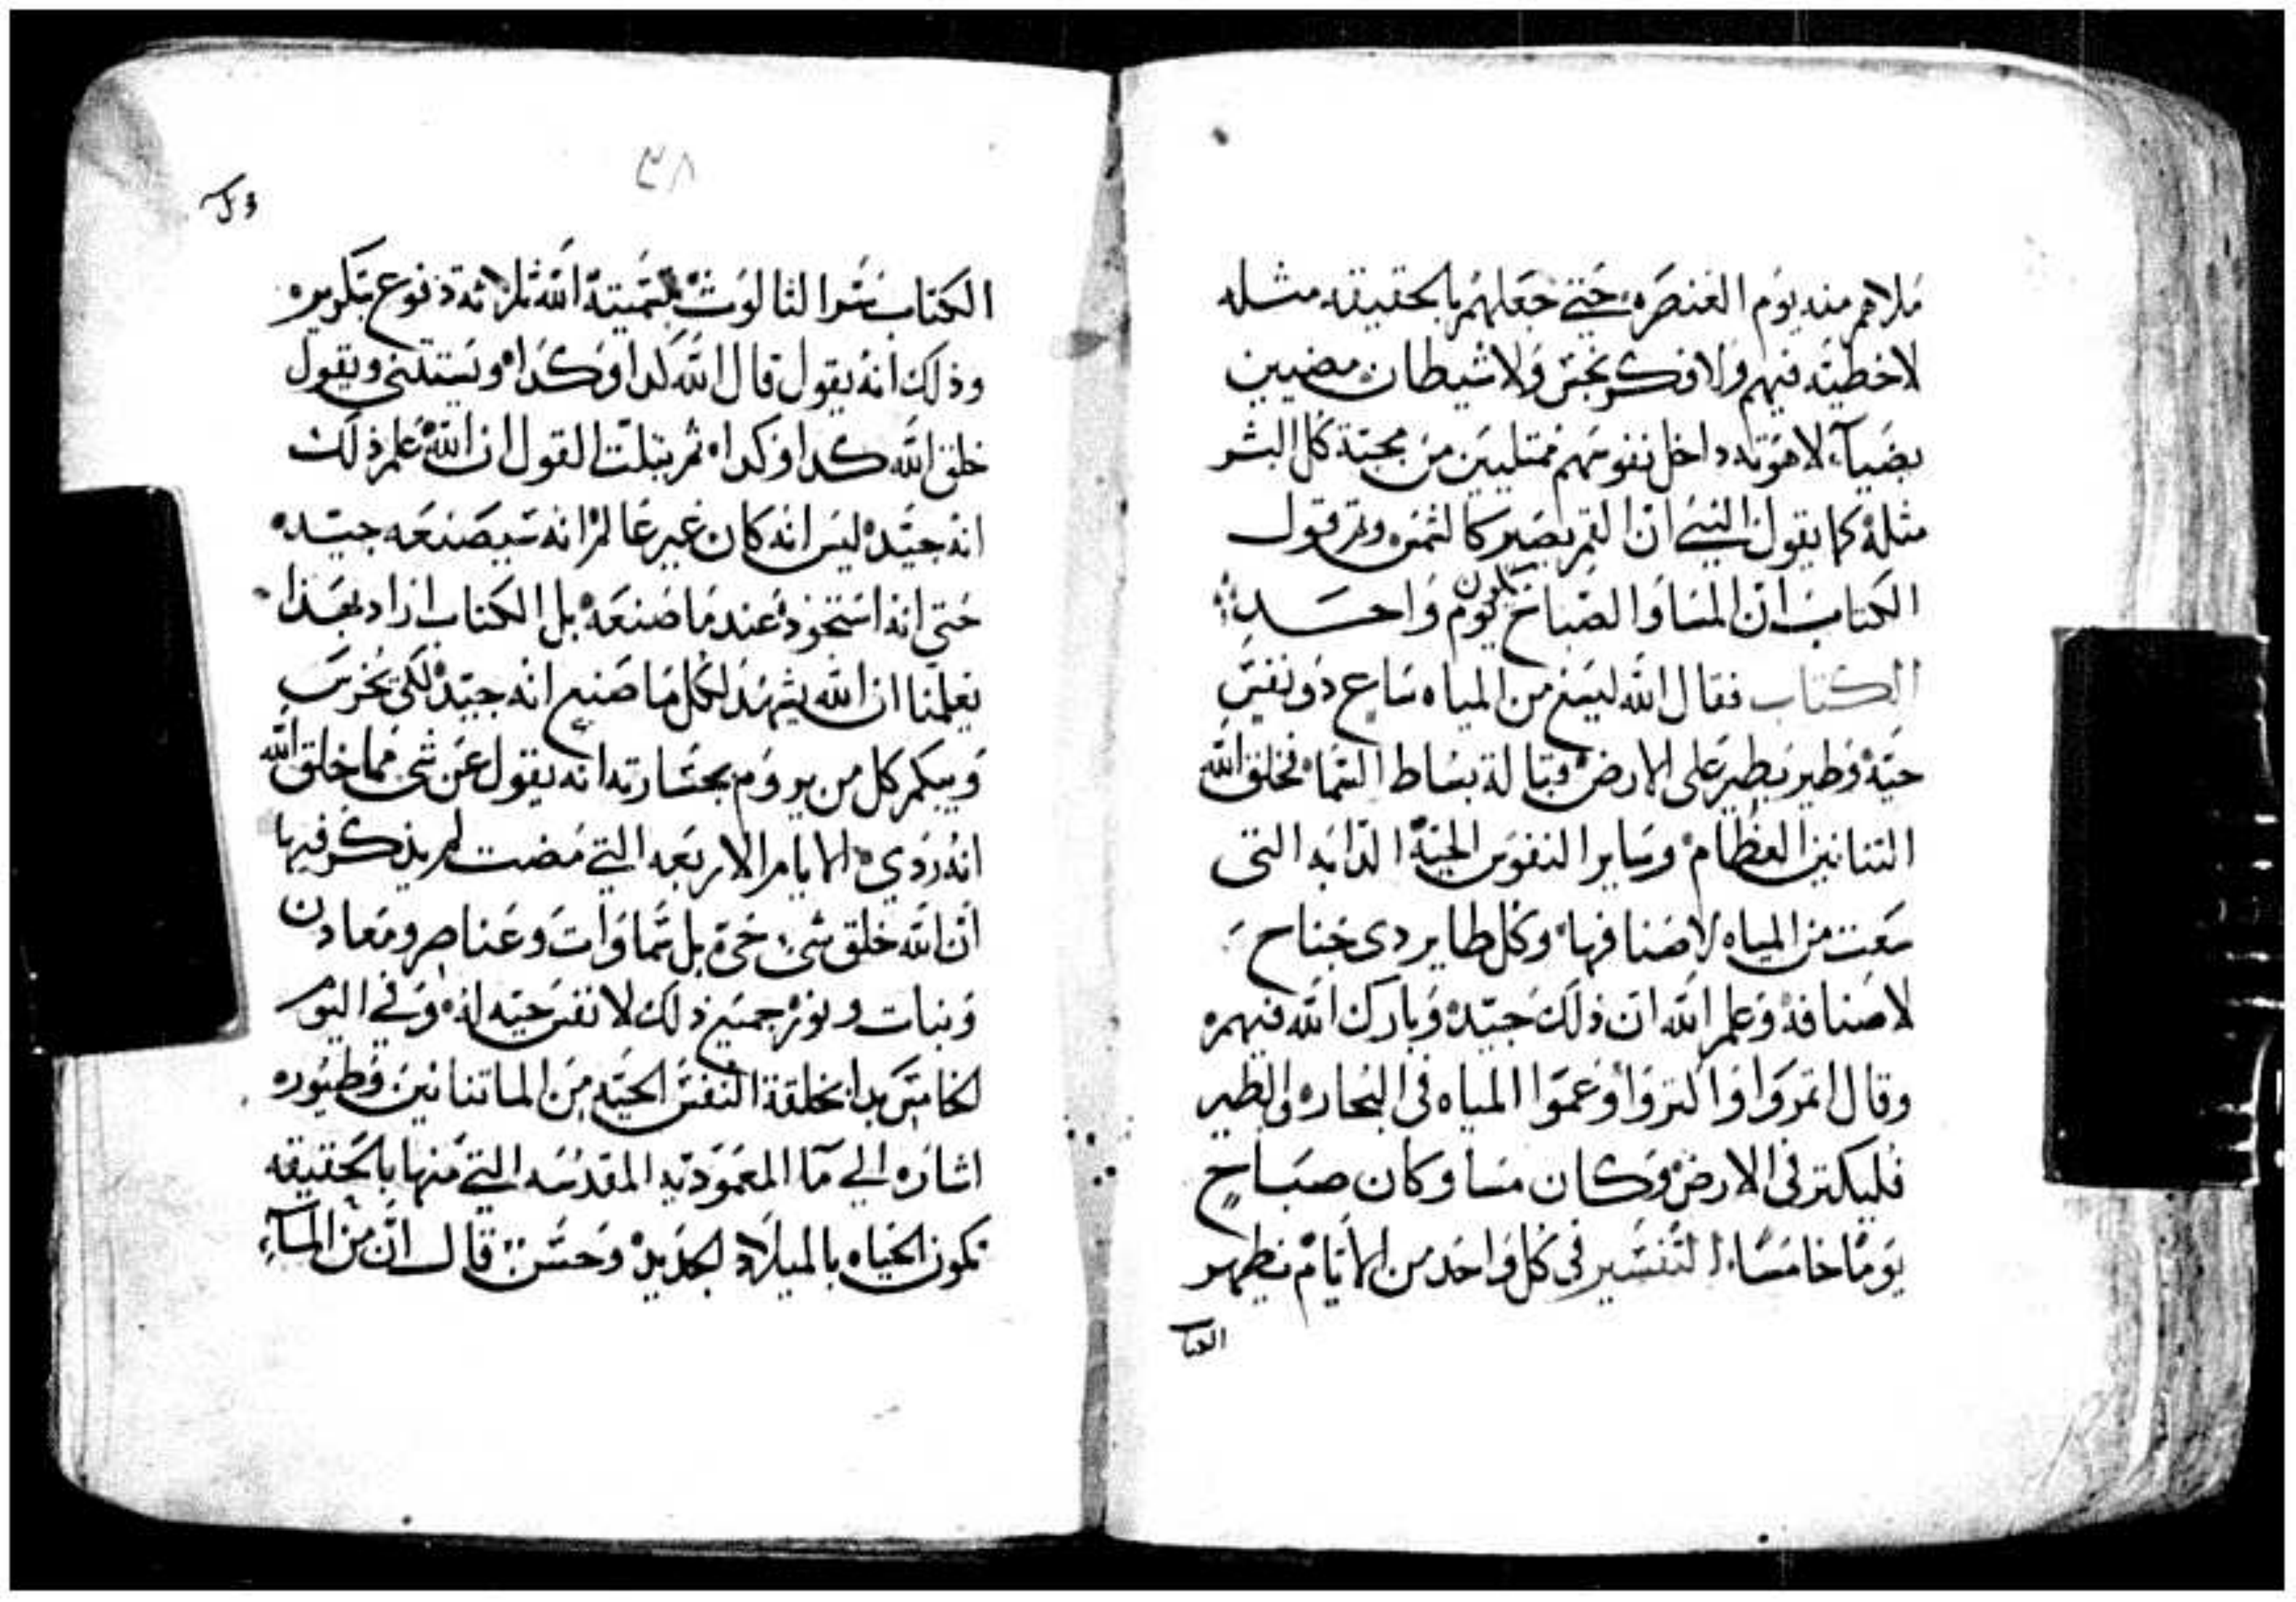 ملاهم منه يوم العنصره حتي جعلهم بالحقيقه مثله
لاخطيه فيهم ولا فكر نجس ولا شيطان مضيين
بضيآء لاهوته داخل نفوسهم ممتليين من محبة كل البشر
مثله كما يقول النبي ان القمر يصير كالشمس وتم قول
الكتاب ان المسا والصباح يكون يوم واحد
الكتاب فقال الله ليسع من المياه ساع ذو نفس
حيه وطير يطير على الارض قبالة بساط السما فخلق الله
التنانين العظام وساير النفوس الحية الدابه التى
سعت من المياه لاصنافها وكل طاير دى جناح
لاصنافه وعلم الله ان ذلك جيد وبارك الله فيهم
وقال اتمروا واكتروا وعموا المياه فى البحار والطير
فليكتر فى الارض وكان مسا وكان صباح
يوما خامسا التفسير فى كل واحد من الايام يظهر
الكتاب
٣٨
الكتاب سر الثالوث بتسمية الله ثلاثة دفوع بتكرير
وذلك انه يقول قال الله كدا وكدا ويستتني ويقول
خلق الله كدا وكدا ثم يتلت القول ان الله علم ذلك
انه جيد ليس انه كان غير عالم انه سيصنعه جيد
حتي انه استجوده عندما صنعه بل الكتاب اراد بهذا
يعلمنا ان الله يشهد لكل ما صنع انه جيد لكي يخرس
ويبكم كل من يروم بجسارته انه يقول عن شى مما خلق الله
انه ردي الايام الاربعه التي مضت لم يذكر فيها
ان الله خلق شى حى بل سماوات وعناصر ومعادن
ونبات ونور جميع ذلك لا نفس حيه له وفي اليوم
الخامس بدا بخلقة النفس الحيه من الما تنانين وطيور
اشاره الي مآ المعموديه المقدسه التي منها بالحقيقه
تكون الحياه بالميلاد الجديد وحسن قال ان من المآء